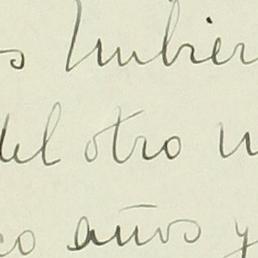 s hubier
del otro m
co años y